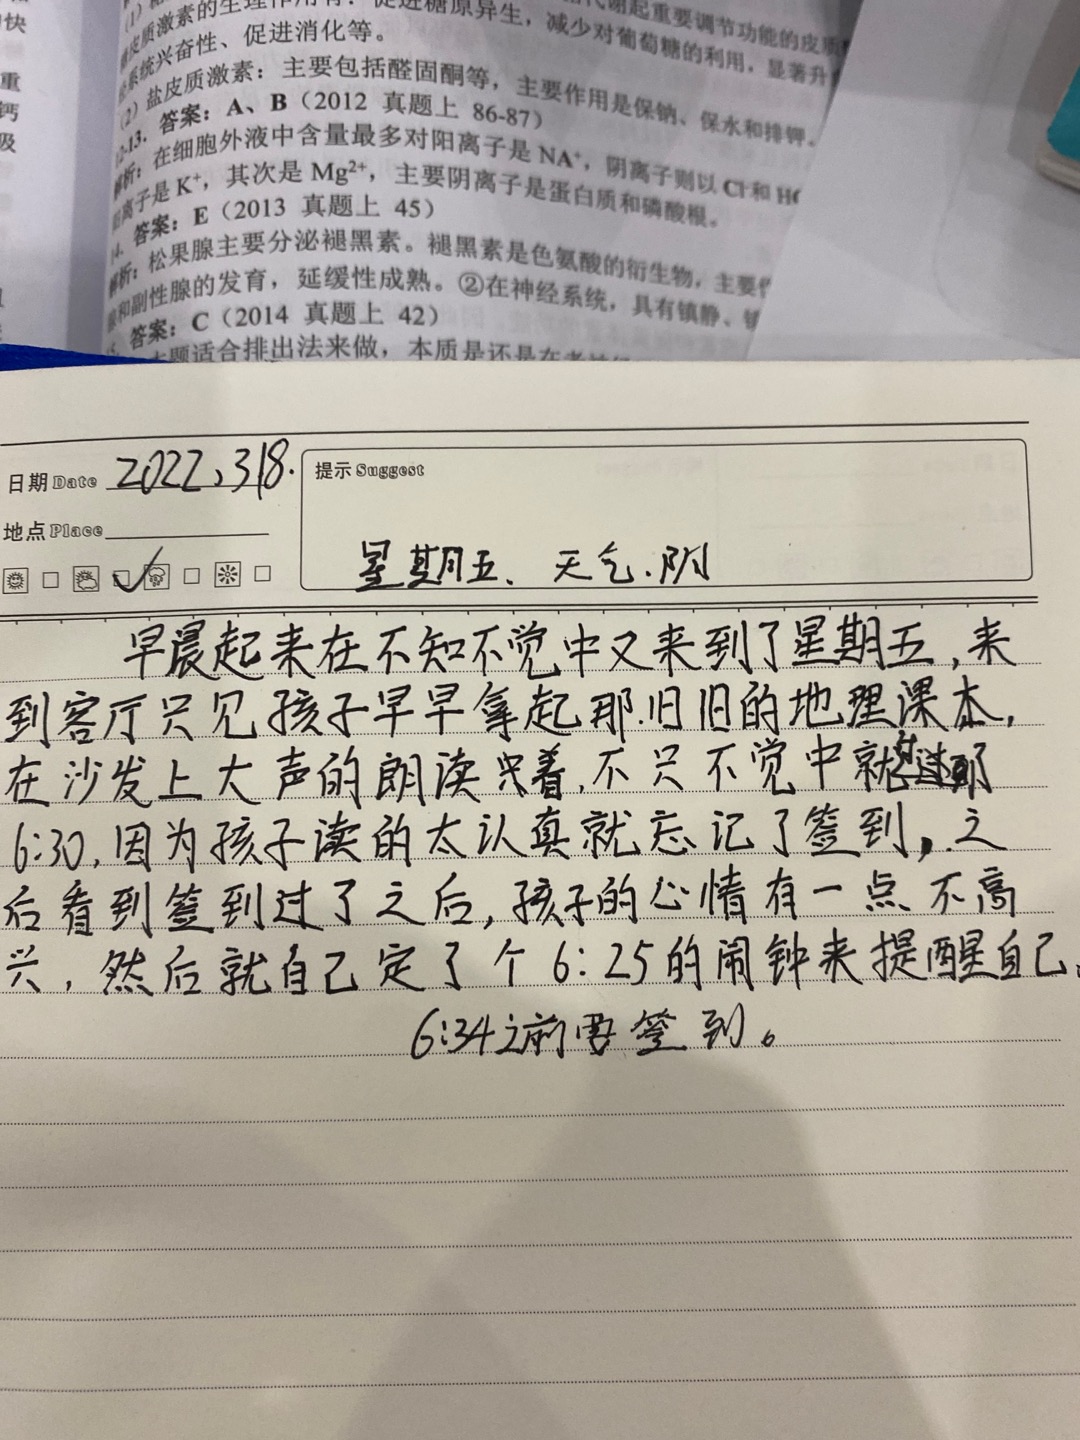 快
重
钙
吸
皮质激素的生理作用有：促进糖原异生，减少对葡萄糖的利用，显著升
系统兴奋性、促进消化等。
(2）盐皮质激素：主要包括醛固酮等，主要作用是保钠、保水和排钾。
12-13. 答案：A、B（2012 真题上 86-87）
解析：在细胞外液中含量最多对阳离子是NA⁺，阴离子则以Cl⁻和H
阳离子是K⁺，其次是Mg²⁺，主要阴离子是蛋白质和磷酸根。
14. 答案：E（2013 真题上 45）
解析：松果腺主要分泌褪黑素。褪黑素是色氨酸的衍生物，主要
和副性腺的发育，延缓性成熟。②在神经系统，具有镇静、
答案：C（2014 真题上 42）
本题适合排出法来做，本质是还是在
日期 Date 2022、3.18.
提示 Suggest
地点 Place
星期五、天气、阴
早晨起来在不知不觉中又来到了星期五，来
到客厅只见孩子早早拿起那旧旧的地理课本，
在沙发上大声的朗读着，不只不觉中就
6:30，因为孩子读的太认真就忘记了签到，之
后看到签到过了之后，孩子的心情有一点不高
兴，然后就自己定了个6:25的闹钟来提醒自己
6:34之前要签到。